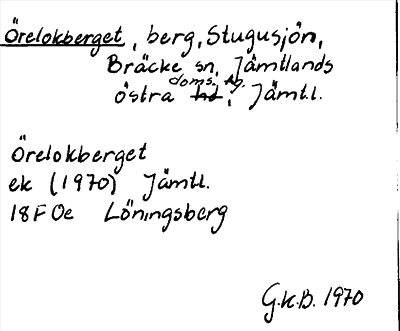 Örelokberget, berg, Stugusjön,
Bräcke sn, Jämtlands
östra doms. hd, Jämtl.
Örelokberget
ek (1970) Jämtl.
18F0e Löningsberg
G.K.B. 1970